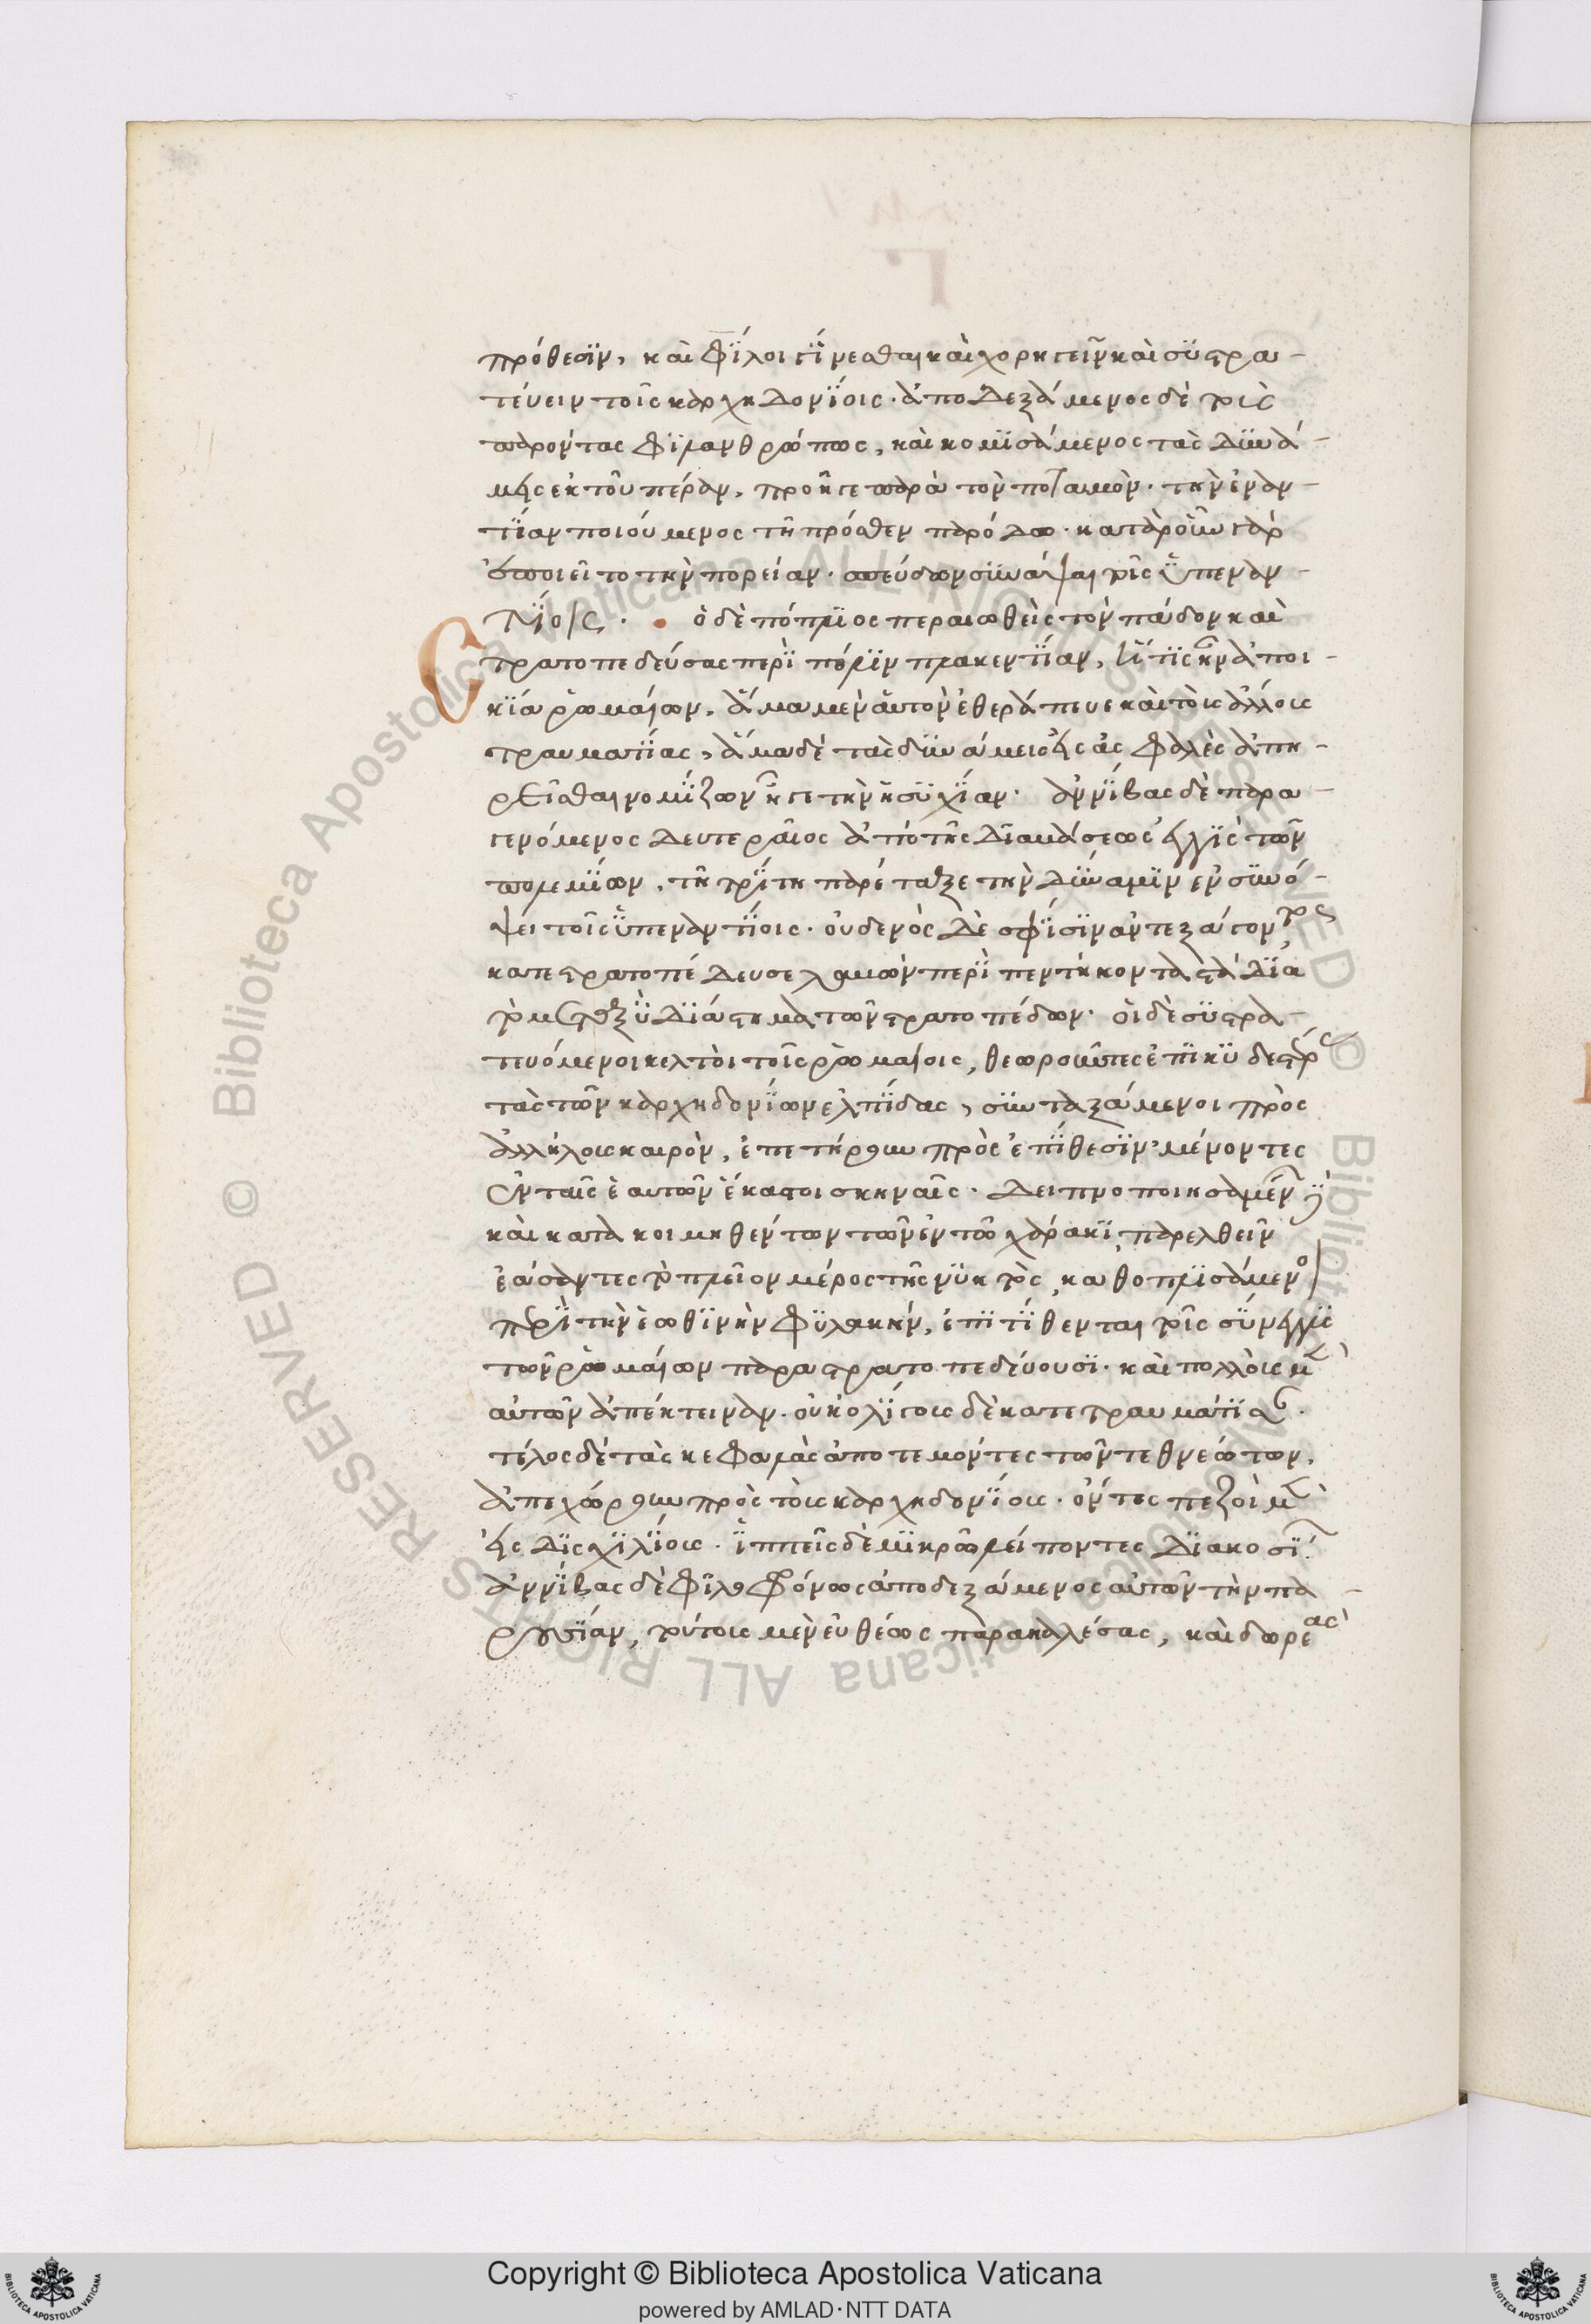 πρόθεσϊν, καὶ φΐλοι γΐνεσθαι καὶ χορηγεῖν καὶ συστρα-
τεύειν τοῖς καρχηδονΐοις· ἀποδεξάμενος δὲ τοὺς
παρόντας φϊλανθρώπως, καὶ κομϊσάμενος τὰς δυνά-
μεις ἐκ τοῦ πέραν, προῆγε παρὰ τὸν ποταμὸν· τὴν ἐναν-
τΐαν ποιούμενος τῆ πρόσθεν παρόδω· κατὰ ῥοῦν γὰρ
ἐποιεῖτο τὴν πορείαν· σπεύδων συνάψαι τοῖς ὑπεναν-
τΐοις· ὁ δὲ πόπλϊος περαιωθεὶς τὸν πάδον καὶ
στρατοπεδεύσας περὶ πόλϊν πλακεντΐαν, ἥτϊς ἦν ἀποι-
κΐα ῥωμαίων, ἅμα μὲν αὑτὸν ἐθεράπευε καὶ τοὺς ἄλλους
τραυματΐας, ἅμα δὲ τὰς δυνάμεις εἰς ἀσφαλὲς ἀπη-
ρεῖσθαι νομΐζων ἦγε τὴν ἡσυχΐαν· ἀννΐβας δὲ παρα-
γενόμενος δευτεραῖος ἀπὸ τῆς διαβάσεως ἐγγὺς τῶν
πολεμΐων, τῆ τρΐτη παρέταξε τὴν δύναμϊν ἐν συνό-
ψει τοῖς ὑπεναντΐοις· οὐδενὸς δὲ σφΐσϊν ἀντεξάγοντος
κατεστρατοπέδευσε λαβὼν περὶ πεντήκοντα στάδΐα
τὸ μεταξὺ δϊάστημα τῶν στρατοπέδων· οἱ δὲ συστρα-
τευόμενοι κελτοὶ τοῖς ῥωμαίοις, θεωροῦντες ἐπϊκυδεστέρας
τὰς τῶν καρχηδονΐων ἐλπΐδας, συνταξάμενοι πρὸς
ἀλλήλους καιρὸν, ἐπετήρουν πρὸς ἐπΐθεσϊν· μένοντες
ἐν ταῖς ἑαυτῶν ἕκαστοι σκηναῖς· δειπνοποιησαμένων
καὶ κατακοιμηθέντων τῶν ἐν τῶ χάρακϊ, παρελθεῖν
ἐάσαντες τὸ πλεῖον μέρος τῆς νυκτὸς, καθοπλϊσάμενοι
περὶ τὴν ἑωθϊνὴν φυλακὴν, ἐπϊτΐθενται τοῖς σύνεγγυς
τῶν ῥωμαίων παραστρατοπεδεύουσϊ· καὶ πολλοὺς μὲν
αὐτῶν ἀπέκτειναν· οὐκ ὀλΐγους δὲ κατετραυμάτϊσαν·
τέλος δὲ τὰς κεφαλὰς ἀποτεμόντες τῶν τεθνεώτων,
ἀπεχώρουν πρὸς τοὺς καρχηδονΐους· ὄντες πεζοὶ μὲν
εἰς δϊσχϊλΐους· ἱππεῖς δὲ μϊκρῶ λείποντες δϊακοσΐων·
ἀννΐβας δὲ φϊλοφρόνως ἀποδεξάμενος αὐτῶν τὴν πα-
ρουσΐαν, τούτους μὲν εὐθέως παρακαλέσας, καὶ δωρεὰς